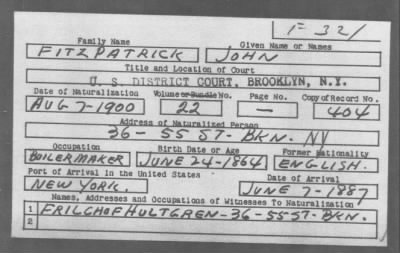 F-321
Family Name Given Name or Names
FITZPATRICK JOHN
Title and Location of Court
U. S. DISTRICT COURT, BROOKLYN, N.Y.
Date of Naturalization Volume or Bundle No. Page No. Copy of Record No.
AUG 7-1900 22 — 404
Address of Naturalized Person
36- 55 ST- BKN. NY
Occupation Birth Date or Age Former Nationality
BOILERMAKER JUNE 24-1864 ENGLISH.
Port of Arrival in the United States Date of Arrival
NEW YORK. JUNE 7-1887
Names, Addresses and Occupations of Witnesses To Naturalization
1 FRILCHOF HULTGREN-36-55 ST- BKN.
2